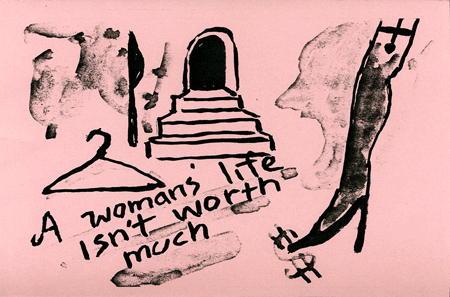 A womans' life
Isn't worth
much